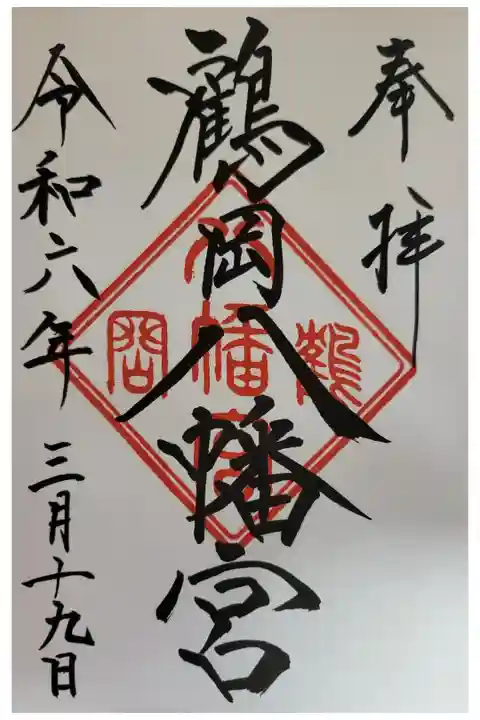 奉拝
鶴岡八幡宮
令和六年三月十九日
鶴
八幡宮
岡